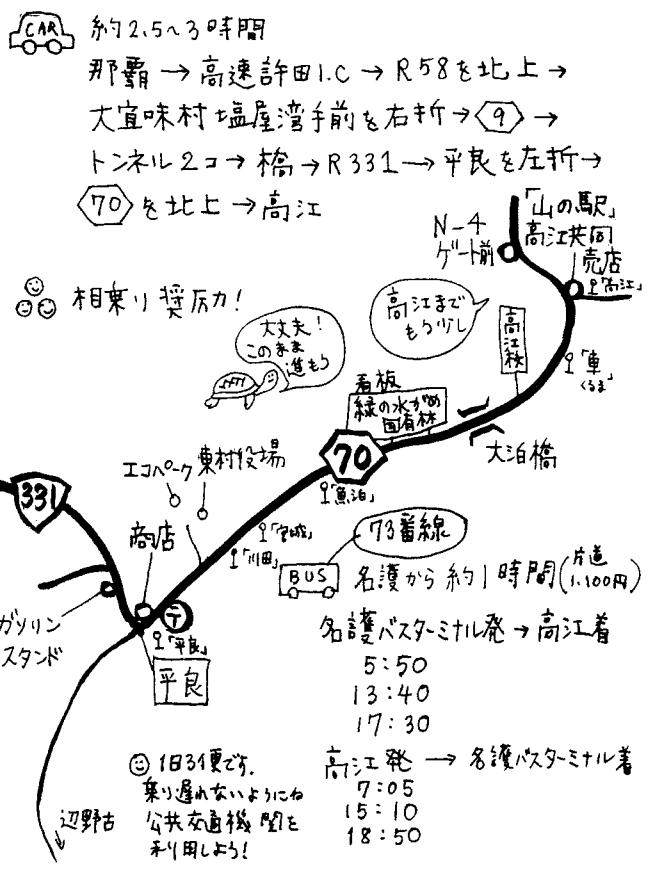 CAR
約2.5~3時間
那覇→高速許田I.C→R58を北上→
大宜味村塩屋湾手前を右折→9→
トンネル2コ→橋→R331→平良を左折→
70を北上→高江
相乗り奨励!
N-4
ゲート前
「山の駅」
高江共同
売店
「高江」
高江まで
もう少し
大丈夫!
このまま
進もう
高江橋
「車」
くるま
看板
緑の水がめ
国有林
大泊橋
70
エコパーク
東村役場
「魚泊」
331
商店
「宮城」
「川田」
73番線
BUS
名護から約1時間(片道
1,100円)
ガソリン
スタンド
〒
「平良」
平良
名護バスターミナル発→高江着
5:50
13:40
17:30
高江発→名護バスターミナル着
7:05
15:10
18:50
1日3便です。
乗り遅れないようにね
公共交通機関を
利用しよう!
辺野古